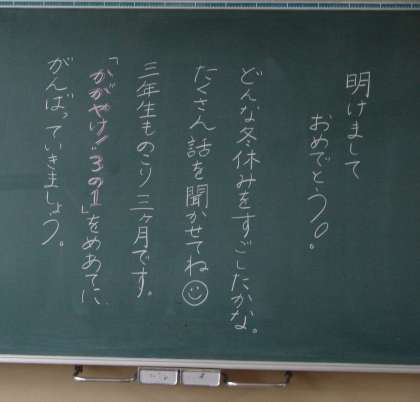 明けまして
おめでとう。
どんな冬休みをすごしたかな。
たくさん話を聞かせてね☺
三年生ものこり三ヶ月です。
「かがやけ！３の１」をめあてに、
がんばっていきましょう。